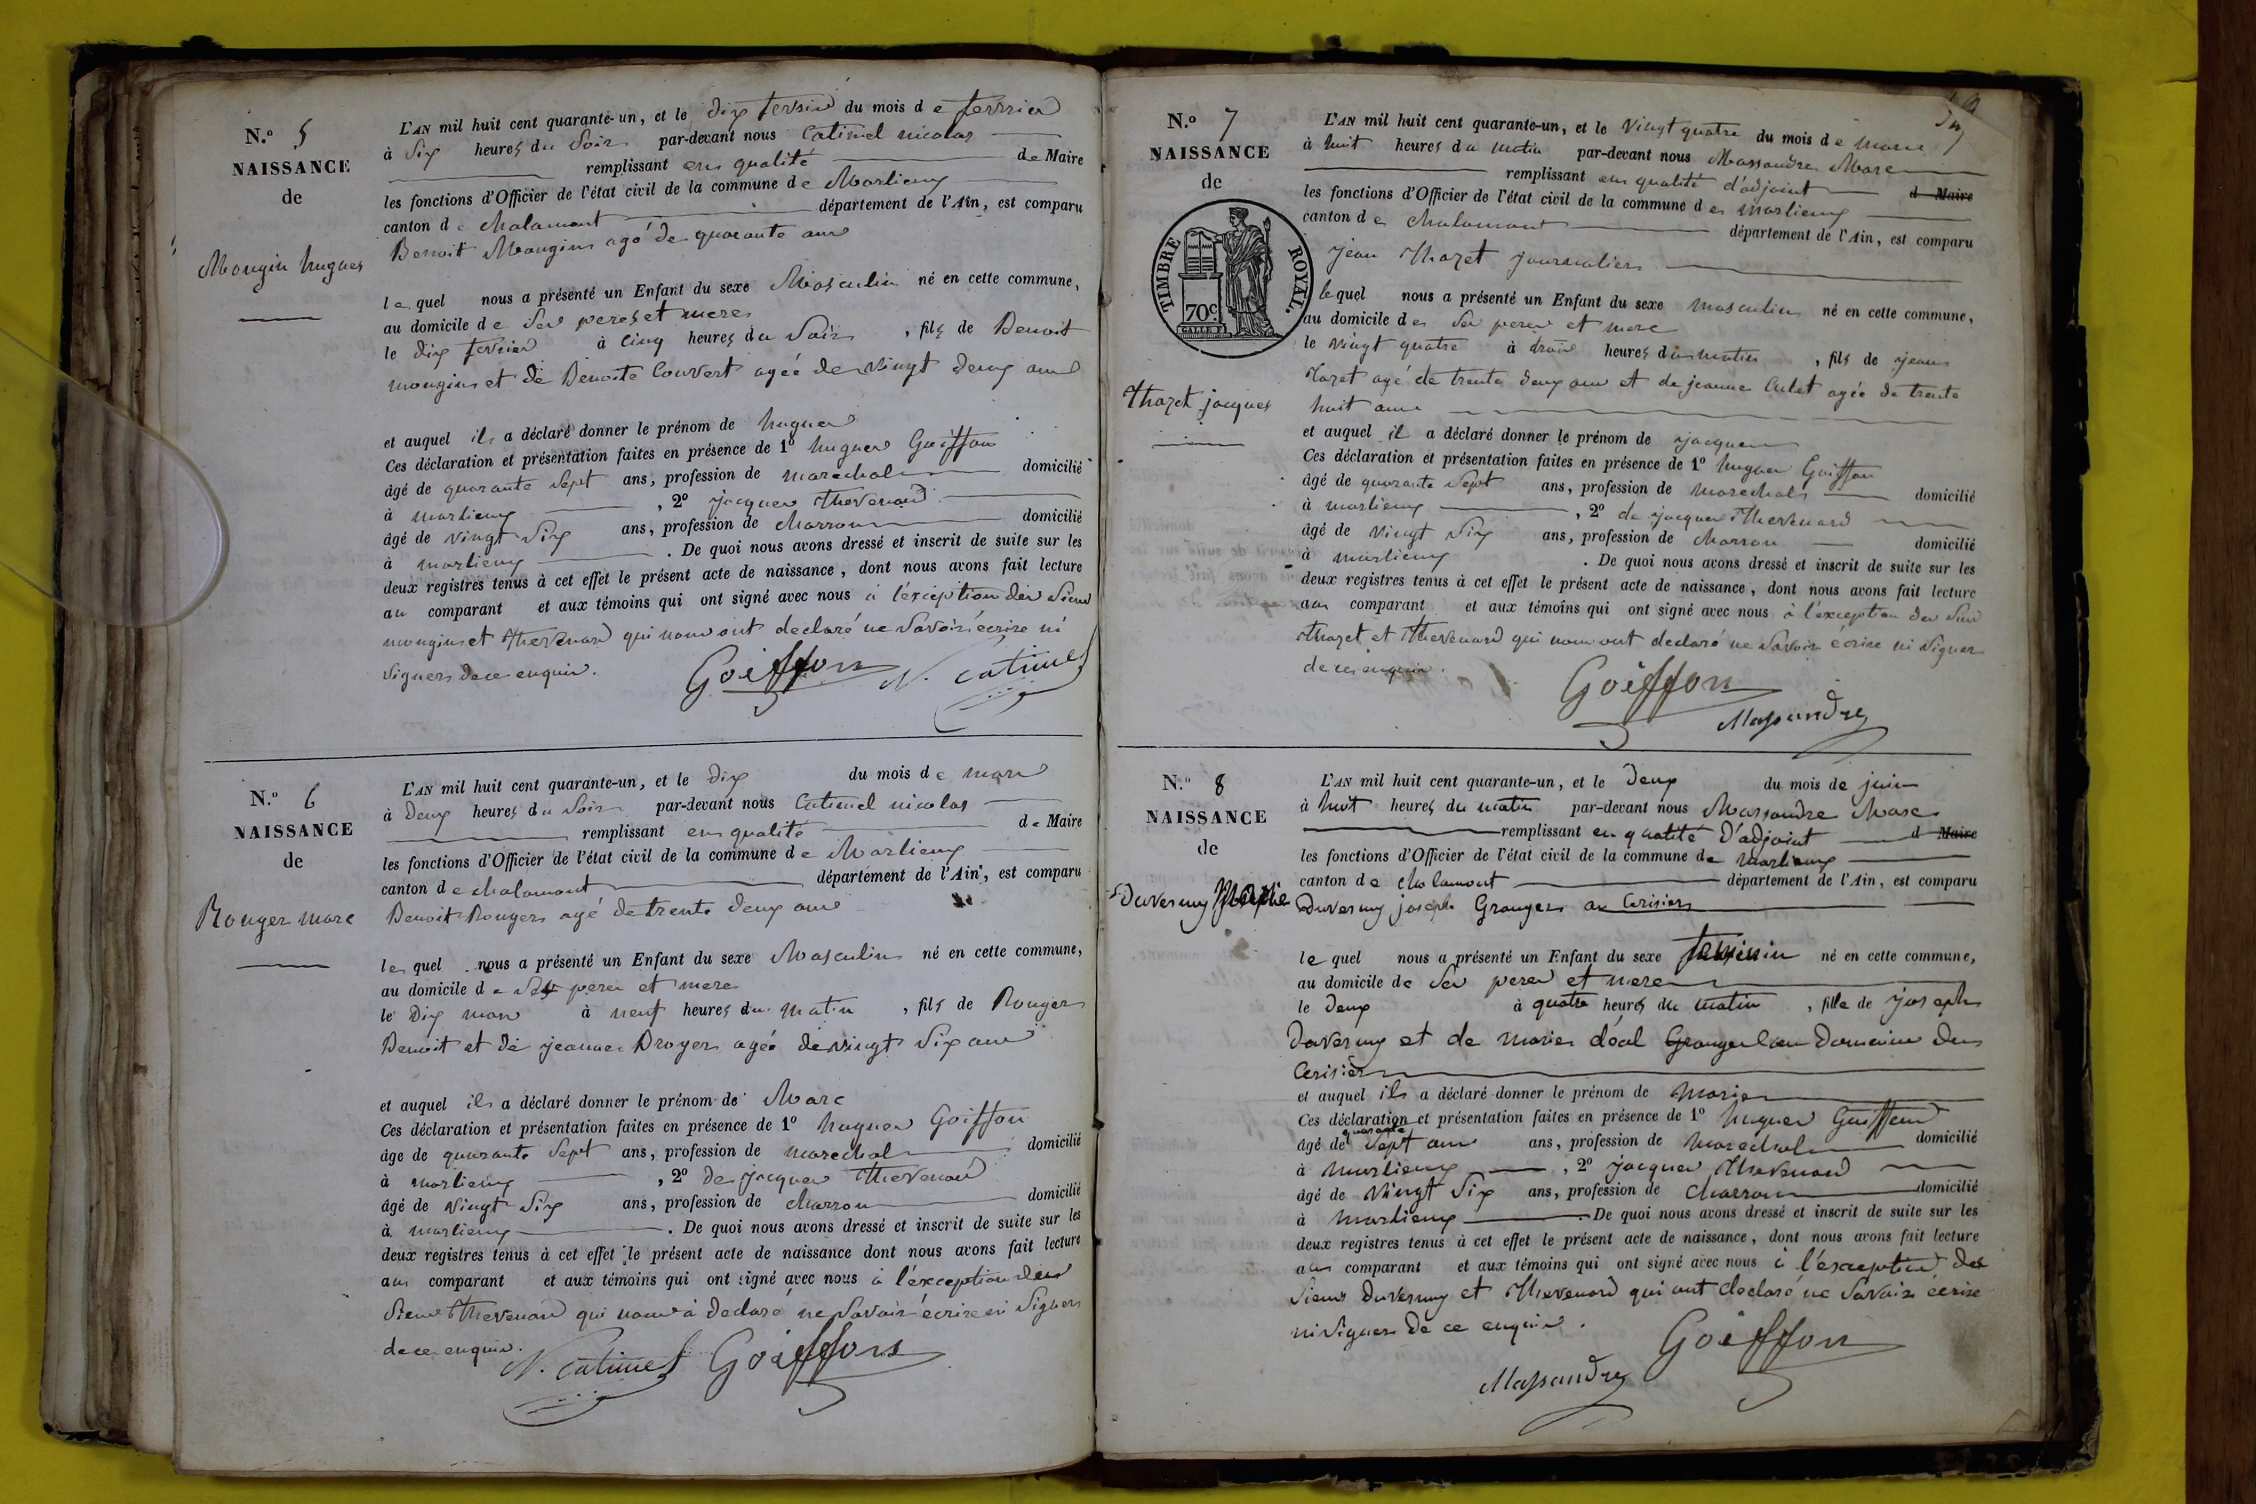 N.o 5
NAISSANCE
de
Mougin hugues
L'AN mil huit cent quarante-un, et le dix fevrier du mois de fevrier
à Six heures du Soir par-devant nous Catimel nicolas
remplissant en qualité de Maire
les fonctions d'Officier de l'état civil de la commune de Marlieux
canton de chalamont département de l'Ain, est comparu
Benoit Mougin agé de quarante ans
le quel nous a présenté un Enfant du sexe Masculin né en cette commune,
au domicile de Ses peres et mere
le dix fevrier à Cinq heures du Soir, fils de Benoit
mougin et de Benoite Couvert agée de Vingt deux ans
et auquel il a déclaré donner le prénom de hugues
Ces déclaration et présentation faites en présence de 1o hugues Goiffon
âgé de quarante Sept ans, profession de marechal domicilié
à marlieux, 2o jacques Thevenard
âgé de vingt Six ans, profession de charron domicilié
à marlieux. De quoi nous avons dressé et inscrit de suite sur les
deux registres tenus à cet effet le présent acte de naissance, dont nous avons fait lecture
au comparant et aux témoins qui ont signé avec nous à l'exception des Sieurs
mougin et Thevenard qui nous ont declaré ne Savoir écrire ni
Signer de ce enquis.
Goiffon N. Catimel
N.o 6
NAISSANCE
de
Rouger marc
L'AN mil huit cent quarante-un, et le dix du mois de mars
à Deux heures du Soir par-devant nous Catimel nicolas
remplissant en qualité de Maire
les fonctions d'Officier de l'état civil de la commune de Marlieux
canton de chalamont département de l'Ain, est comparu
Benoit Rouger agé de trente deux ans
le quel nous a présenté un Enfant du sexe Masculin né en cette commune,
au domicile de Ses peres et mere
le Dix mars à neuf heures du matin, fils de Rouger
Benoit et de jeanne Broyer agée de vingt Six ans
et auquel il a déclaré donner le prénom de Marc
Ces déclaration et présentation faites en présence de 1o hugues Goiffon
âge de quarante Sept ans, profession de marechal domicilié
à marlieux, 2o de jacques Thevenard
âgé de vingt Six ans, profession de charron domicilié
à marlieux. De quoi nous avons dressé et inscrit de suite sur les
deux registres tenus à cet effet le présent acte de naissance dont nous avons fait lecture
au comparant et aux témoins qui ont signé avec nous à l'exception des
Sieur Thevenard qui nous a declaré ne Savoir écrire ni Signer
de ce enquis.
N. Catimel Goiffon
N.o 7
NAISSANCE
de
TIMBRE ROYAL.
70c
Thozet jacques
L'AN mil huit cent quarante-un, et le Vingt quatre du mois de mars
à huit heures du matin par-devant nous Massandre Marc
remplissant en qualité d'adjoint d Maire
les fonctions d'Officier de l'état civil de la commune de marlieux
canton de chalamont département de l'Ain, est comparu
jean Thozet journalier
le quel nous a présenté un Enfant du sexe masculin né en cette commune,
au domicile de Ses peres et mere
le vingt quatre à trois heures du matin, fils de jean
Tozet agé de trente deux ans et de jeanne Culet agée de trente
huit ans
et auquel il a déclaré donner le prénom de jacques
Ces déclaration et présentation faites en présence de 1o hugues Goiffon
âgé de quarante Sept ans, profession de marechal domicilié
à marlieux, 2o de jacques Thevenard
âgé de vingt Six ans, profession de charron domicilié
à marlieux. De quoi nous avons dressé et inscrit de suite sur les
deux registres tenus à cet effet le présent acte de naissance, dont nous avons fait lecture
au comparant et aux témoins qui ont signé avec nous à l'exception des Sieurs
Thozet et Thevenard qui nous ont declaré ne Savoir écrire ni Signer
de ce enquis.
Goiffon
Massandre
N.o 8
NAISSANCE
de
Duverny
L'AN mil huit cent quarante-un, et le Deux du mois de juin
à huit heures du matin par-devant nous Massandre Marc
remplissant en qualité d'adjoint d Maire
les fonctions d'Officier de l'état civil de la commune de marlieux
canton de chalamont département de l'Ain, est comparu
Duverny joseph Granger au Cerisiers
le quel nous a présenté un Enfant du sexe feminin né en cette commune,
au domicile de Ses peres et mere
le Deux à quatre heures du matin, fille de joseph
Duverny et de marie déal Granger au Domaine des
Cerisier
et auquel il a déclaré donner le prénom de Marie
Ces déclaration et présentation faites en présence de 1o hugues Goiffon
âgé de quarante Sept ans ans, profession de marechal domicilié
à marlieux, 2o jacques Thevenard
âgé de Vingt Six ans, profession de charron domicilié
à marlieux. De quoi nous avons dressé et inscrit de suite sur les
deux registres tenus à cet effet le présent acte de naissance, dont nous avons fait lecture
au comparant et aux témoins qui ont signé avec nous à l'exception des
Sieurs Duverny et Thevenard qui ont declaré ne Savoir écrire
ni Signer de ce enquis.
Goiffon
Massandre